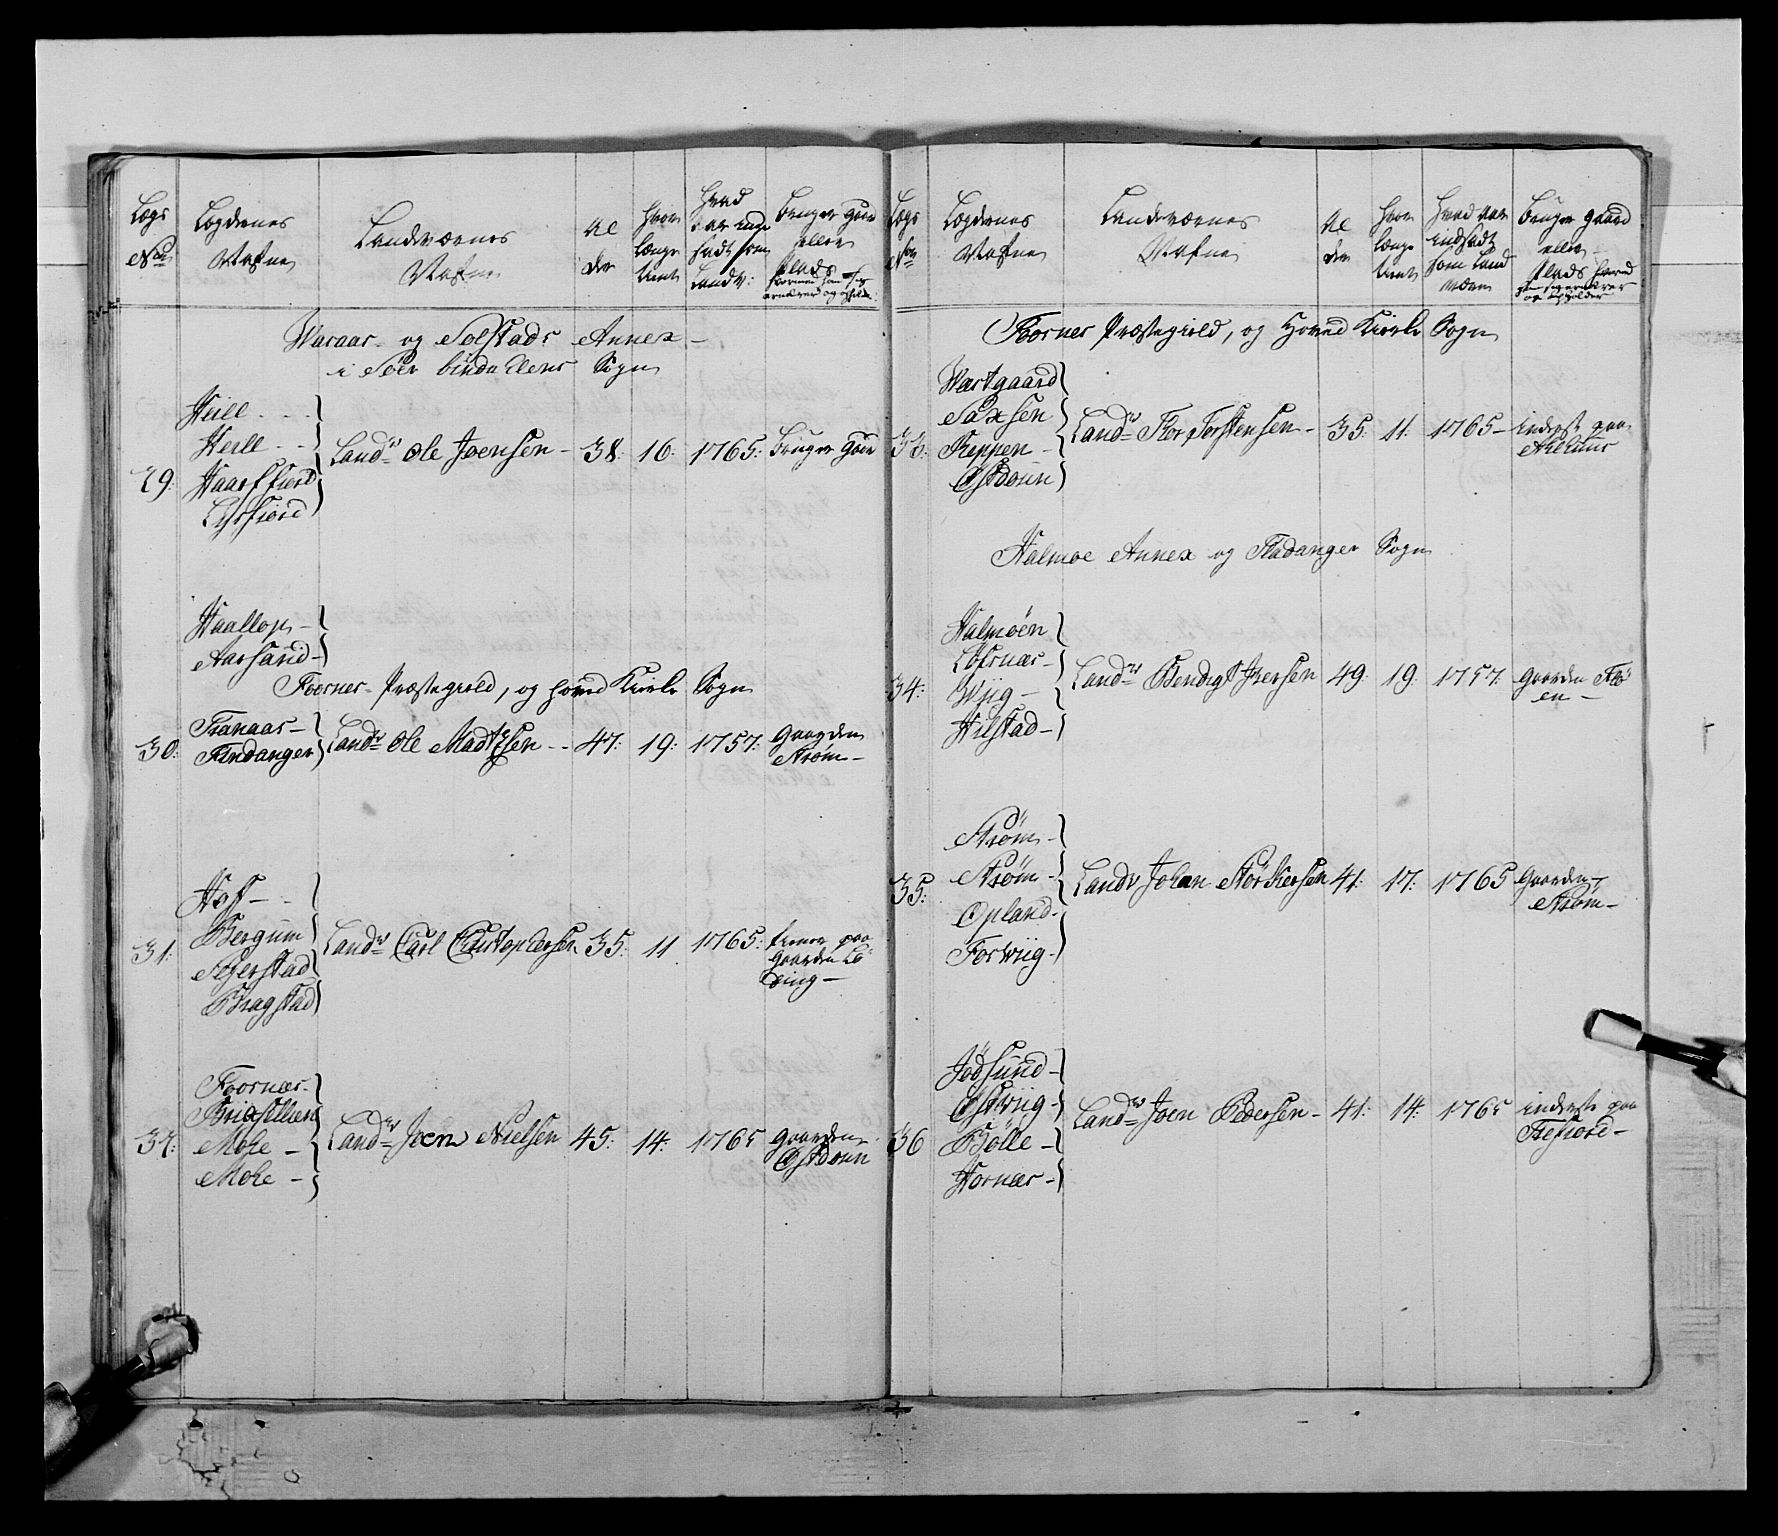 Lægs
No
Lægdernes
Nafne
Landværnes
Nafne
Al
der
hvor
længe
tient
hvad
aar ind
sadt som
Landv:
bruger gaar
eller
Plads
hvormed han sig
ernærer og opholder
Waraas og Solstads Annex
i Søer bindallens Sogn
Heill
Heill
29:
Haarfiord
Lysfiord
Landv Ole Joensen - 38: 16: 1765: bruger gaar
Haallop
Aarsand
Foornes Præstegield, og hoved Kirke Sogn
30:
Tranaas
Flindanger
Landv Ole Madtzsen - 47: 19: 1757: gaarden
Strøm
31:
Hoff
Bergum
Seierstad
Bragstad
Landv Carl Christophersen 35: 11 1765: tiener paa
gaarden Lö
ding
32:
Foornæs
Brixellien
Mohe
Mohe
Landv Joen Nielsen 45: 14: 1765 gaarden
Ostdoun
Lægs
No
Lægdernes
Nafne
Landværnes
Nafne
Al
der
hvor
længe
tient
hvad aar
indsadt
som Land
værn
bruger gaard
eller
Plads hvormed
han sig ernærer
og opholder
Foornes Præstegield, og Hoved Kirke Sogn
33:
Wæstgaard
Saxsen
Reppen
Ostdoun
Landv Tor Torstensen - 35: 11: 1765 - inderst paa
Halmoe Annex og Fladanger Sogn
34:
Halmöen
Löfsnæs
Wiig
Hilstad
Landv Bendigt Iversen 49: 19: 1757: gaarden Flö
en
35:
Strøm
Strøm
Opland
Forwiig
Landv Johan Störkersen 41: 17: 1765 gaarden
Strøm
36
Jödsund
Ostwiig
Bölle
Hornæs
Landv Joen Pedersen - 41: 14: 1765 inderste paa
Sefiord